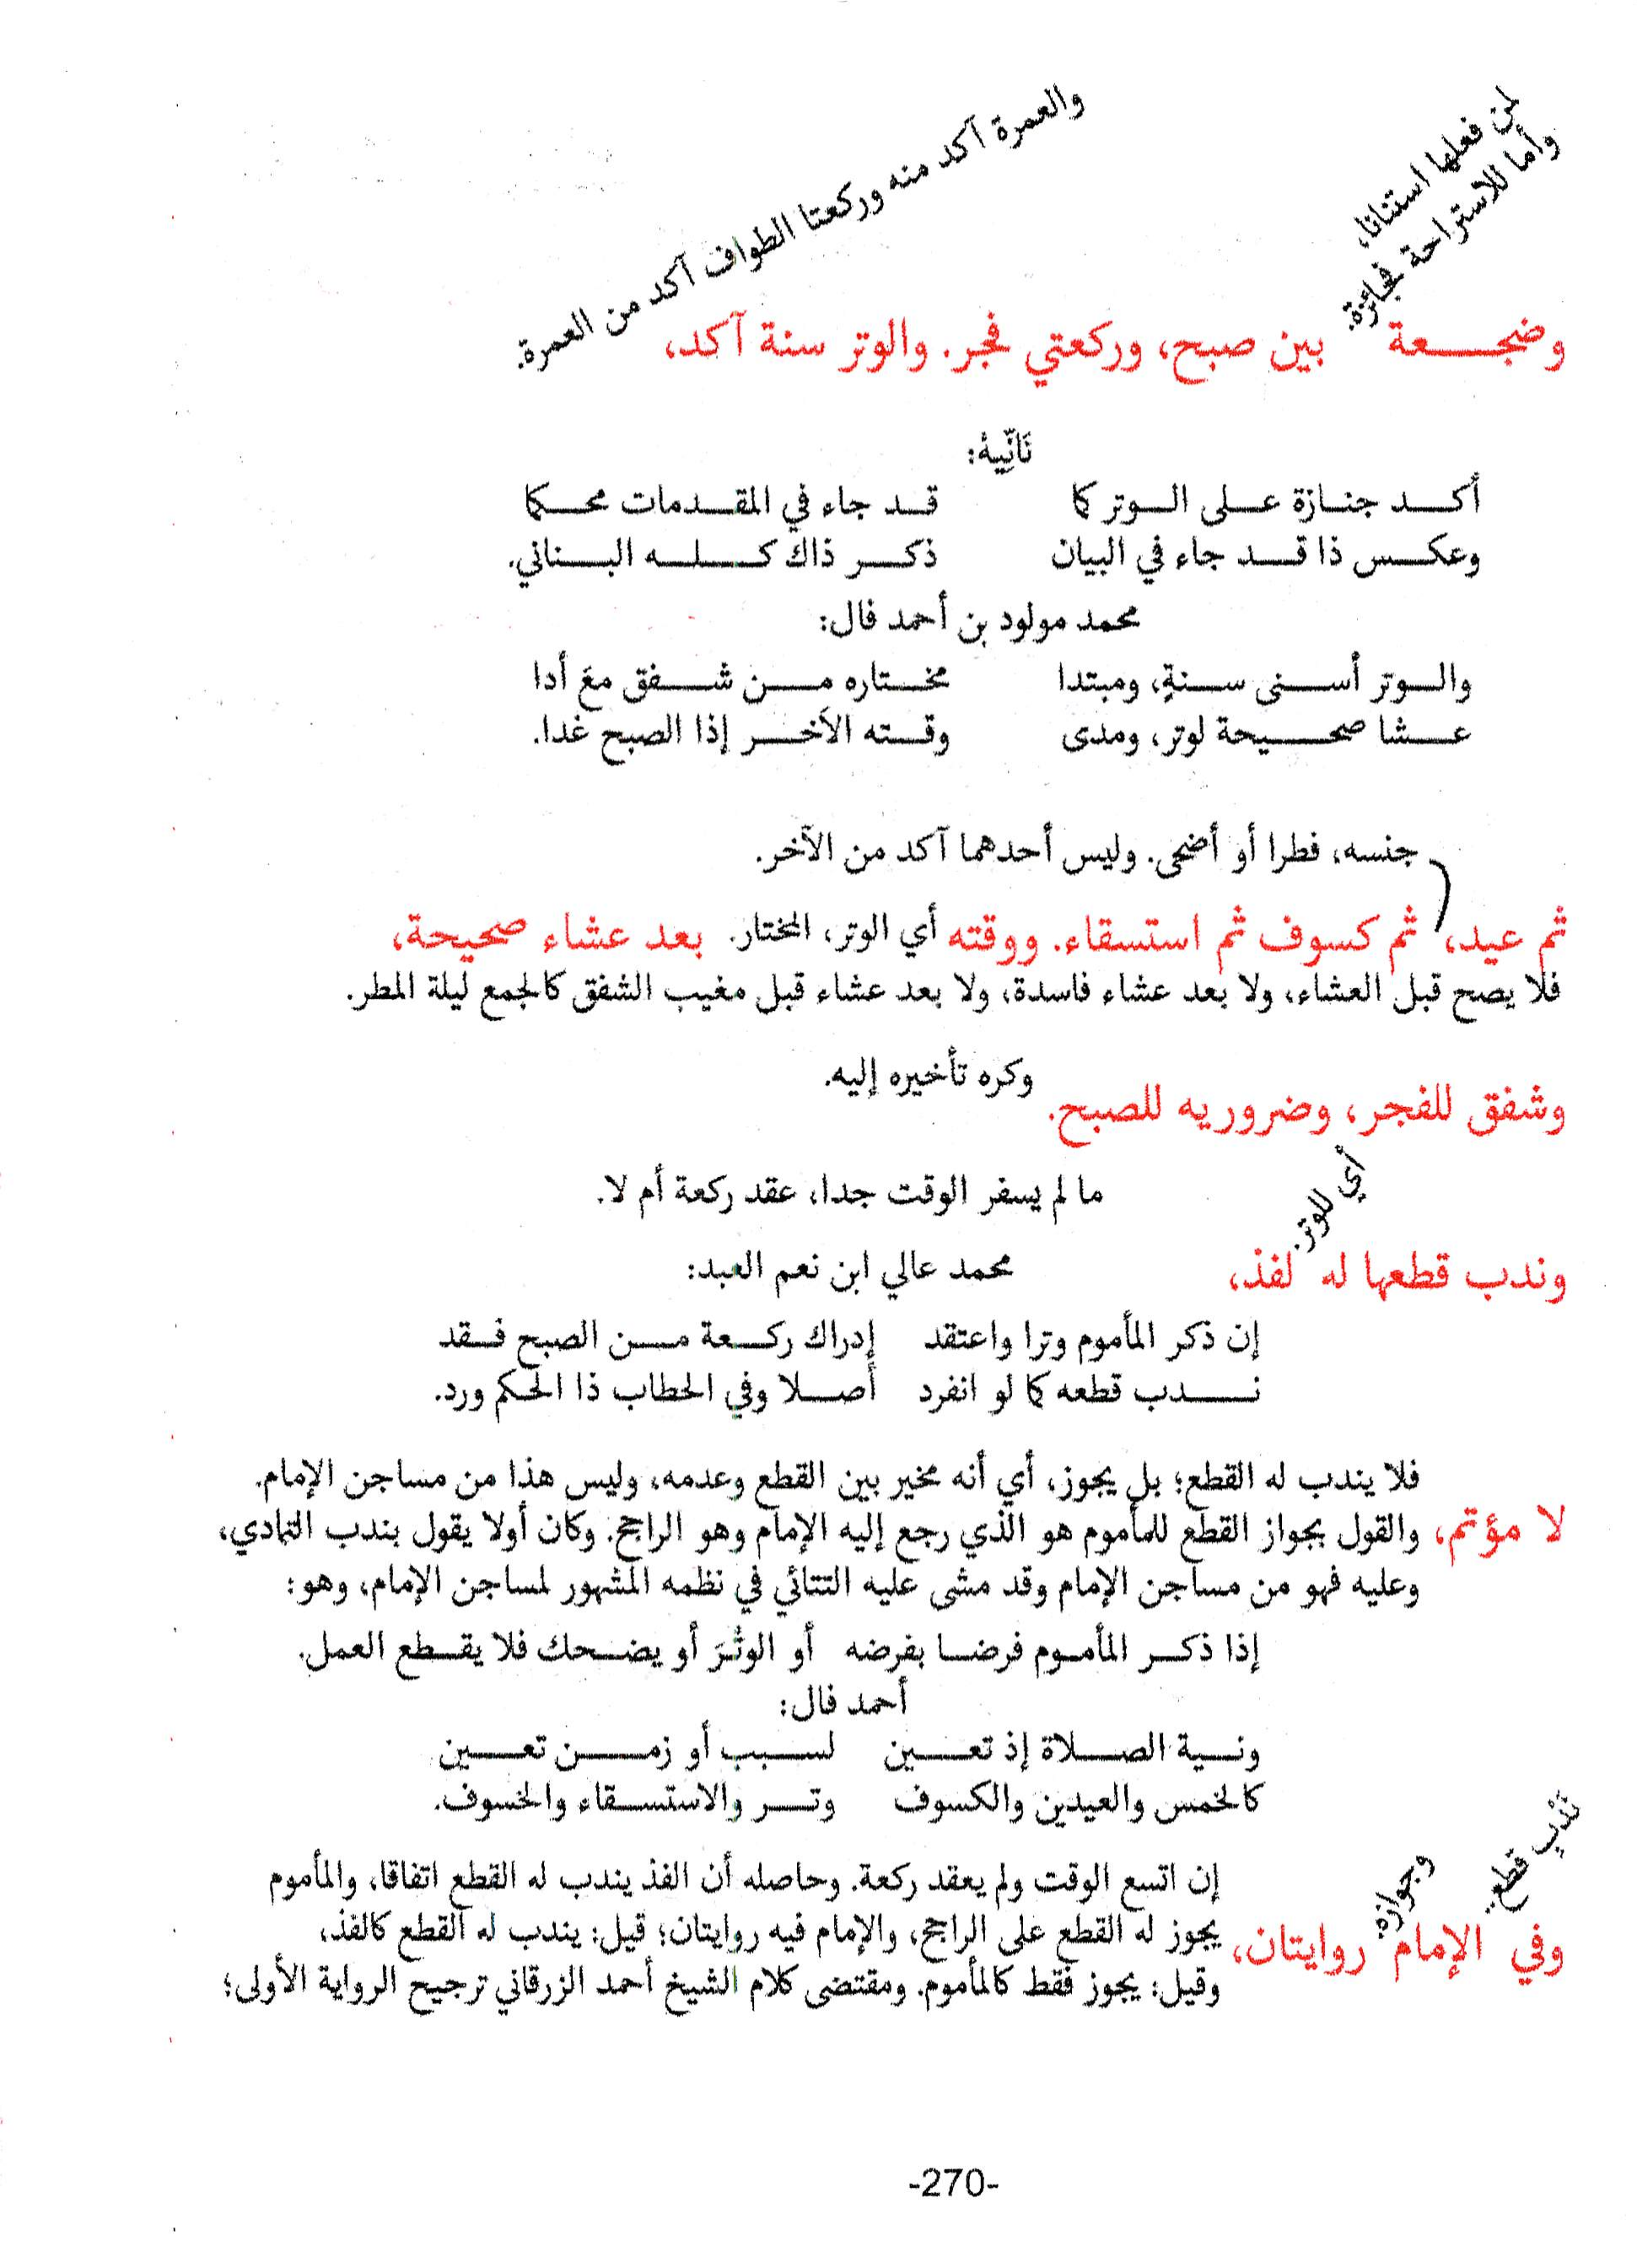 لمن فعلها استنانا،
وأما للاستراحة فجائزة.
والعمرة آكد منه وركعتا الطواف آكد من العمرة.
وضجعة بين صبح، وركعتي فجر. والوتر سنة آكد،
نَانِّيهْ:
أكد جنازة على الوتر كما قد جاء في المقدمات محكما
وعكس ذا قد جاء في البيان ذكر ذاك كله البناني.
محمد مولود بن أحمد فال:
والوتر أسنى سنةٍ، ومبتدا مختاره من شفق معَ أدا
عشا صحيحة لوتر، ومدى وقته الآخر إذا الصبح غدا.
جنسه، فطرا أو أضحى. وليس أحدهما آكد من الآخر.
ثم عيد، ثم كسوف ثم استسقاء. ووقته أي الوتر، المختار. بعد عشاء صحيحة،
فلا يصح قبل العشاء، ولا بعد عشاء فاسدة، ولا بعد عشاء قبل مغيب الشفق كالجمع ليلة المطر.
وكره تأخيره إليه.
وشفق للفجر، وضروريه للصبح.
ما لم يسفر الوقت جدا، عقد ركعة أم لا.
أي للوتر.
وندب قطعها له لفذ،
محمد عالي ابن نعم العبد:
إن ذكر المأموم وترا واعتقد إدراك ركعة من الصبح فقد
ندب قطعه كما لو انفرد أصلا وفي الحطاب ذا الحكم ورد.
فلا يندب له القطع؛ بل يجوز، أي أنه مخير بين القطع وعدمه، وليس هذا من مساجن الإمام.
لا مؤتم، والقول بجواز القطع للمأموم هو الذي رجع إليه الإمام وهو الراجح. وكان أولا يقول بندب التمادي،
وعليه فهو من مساجن الإمام وقد مشى عليه التتائي في نظمه المشهور لمساجن الإمام، وهو:
إذا ذكر المأموم فرضا بفرضه أو الوتْرَ أو يضحك فلا يقطع العمل.
أحمد فال:
ونية الصلاة إذ تعين لسبب أو زمن تعين
كالخمس والعيدين والكسوف وتر والاستسقاء والخسوف.
نَدْبِ قطع.
وجوازه
إن اتسع الوقت ولم يعقد ركعة. وحاصله أن الفذ يندب له القطع اتفاقا، والمأموم
وفي الإمام روايتان، يجوز له القطع على الراجح، والإمام فيه روايتان؛ قيل: يندب له القطع كالفذ،
وقيل: يجوز فقط كالمأموم. ومقتضى كلام الشيخ أحمد الزرقاني ترجيح الرواية الأولى؛
-270-